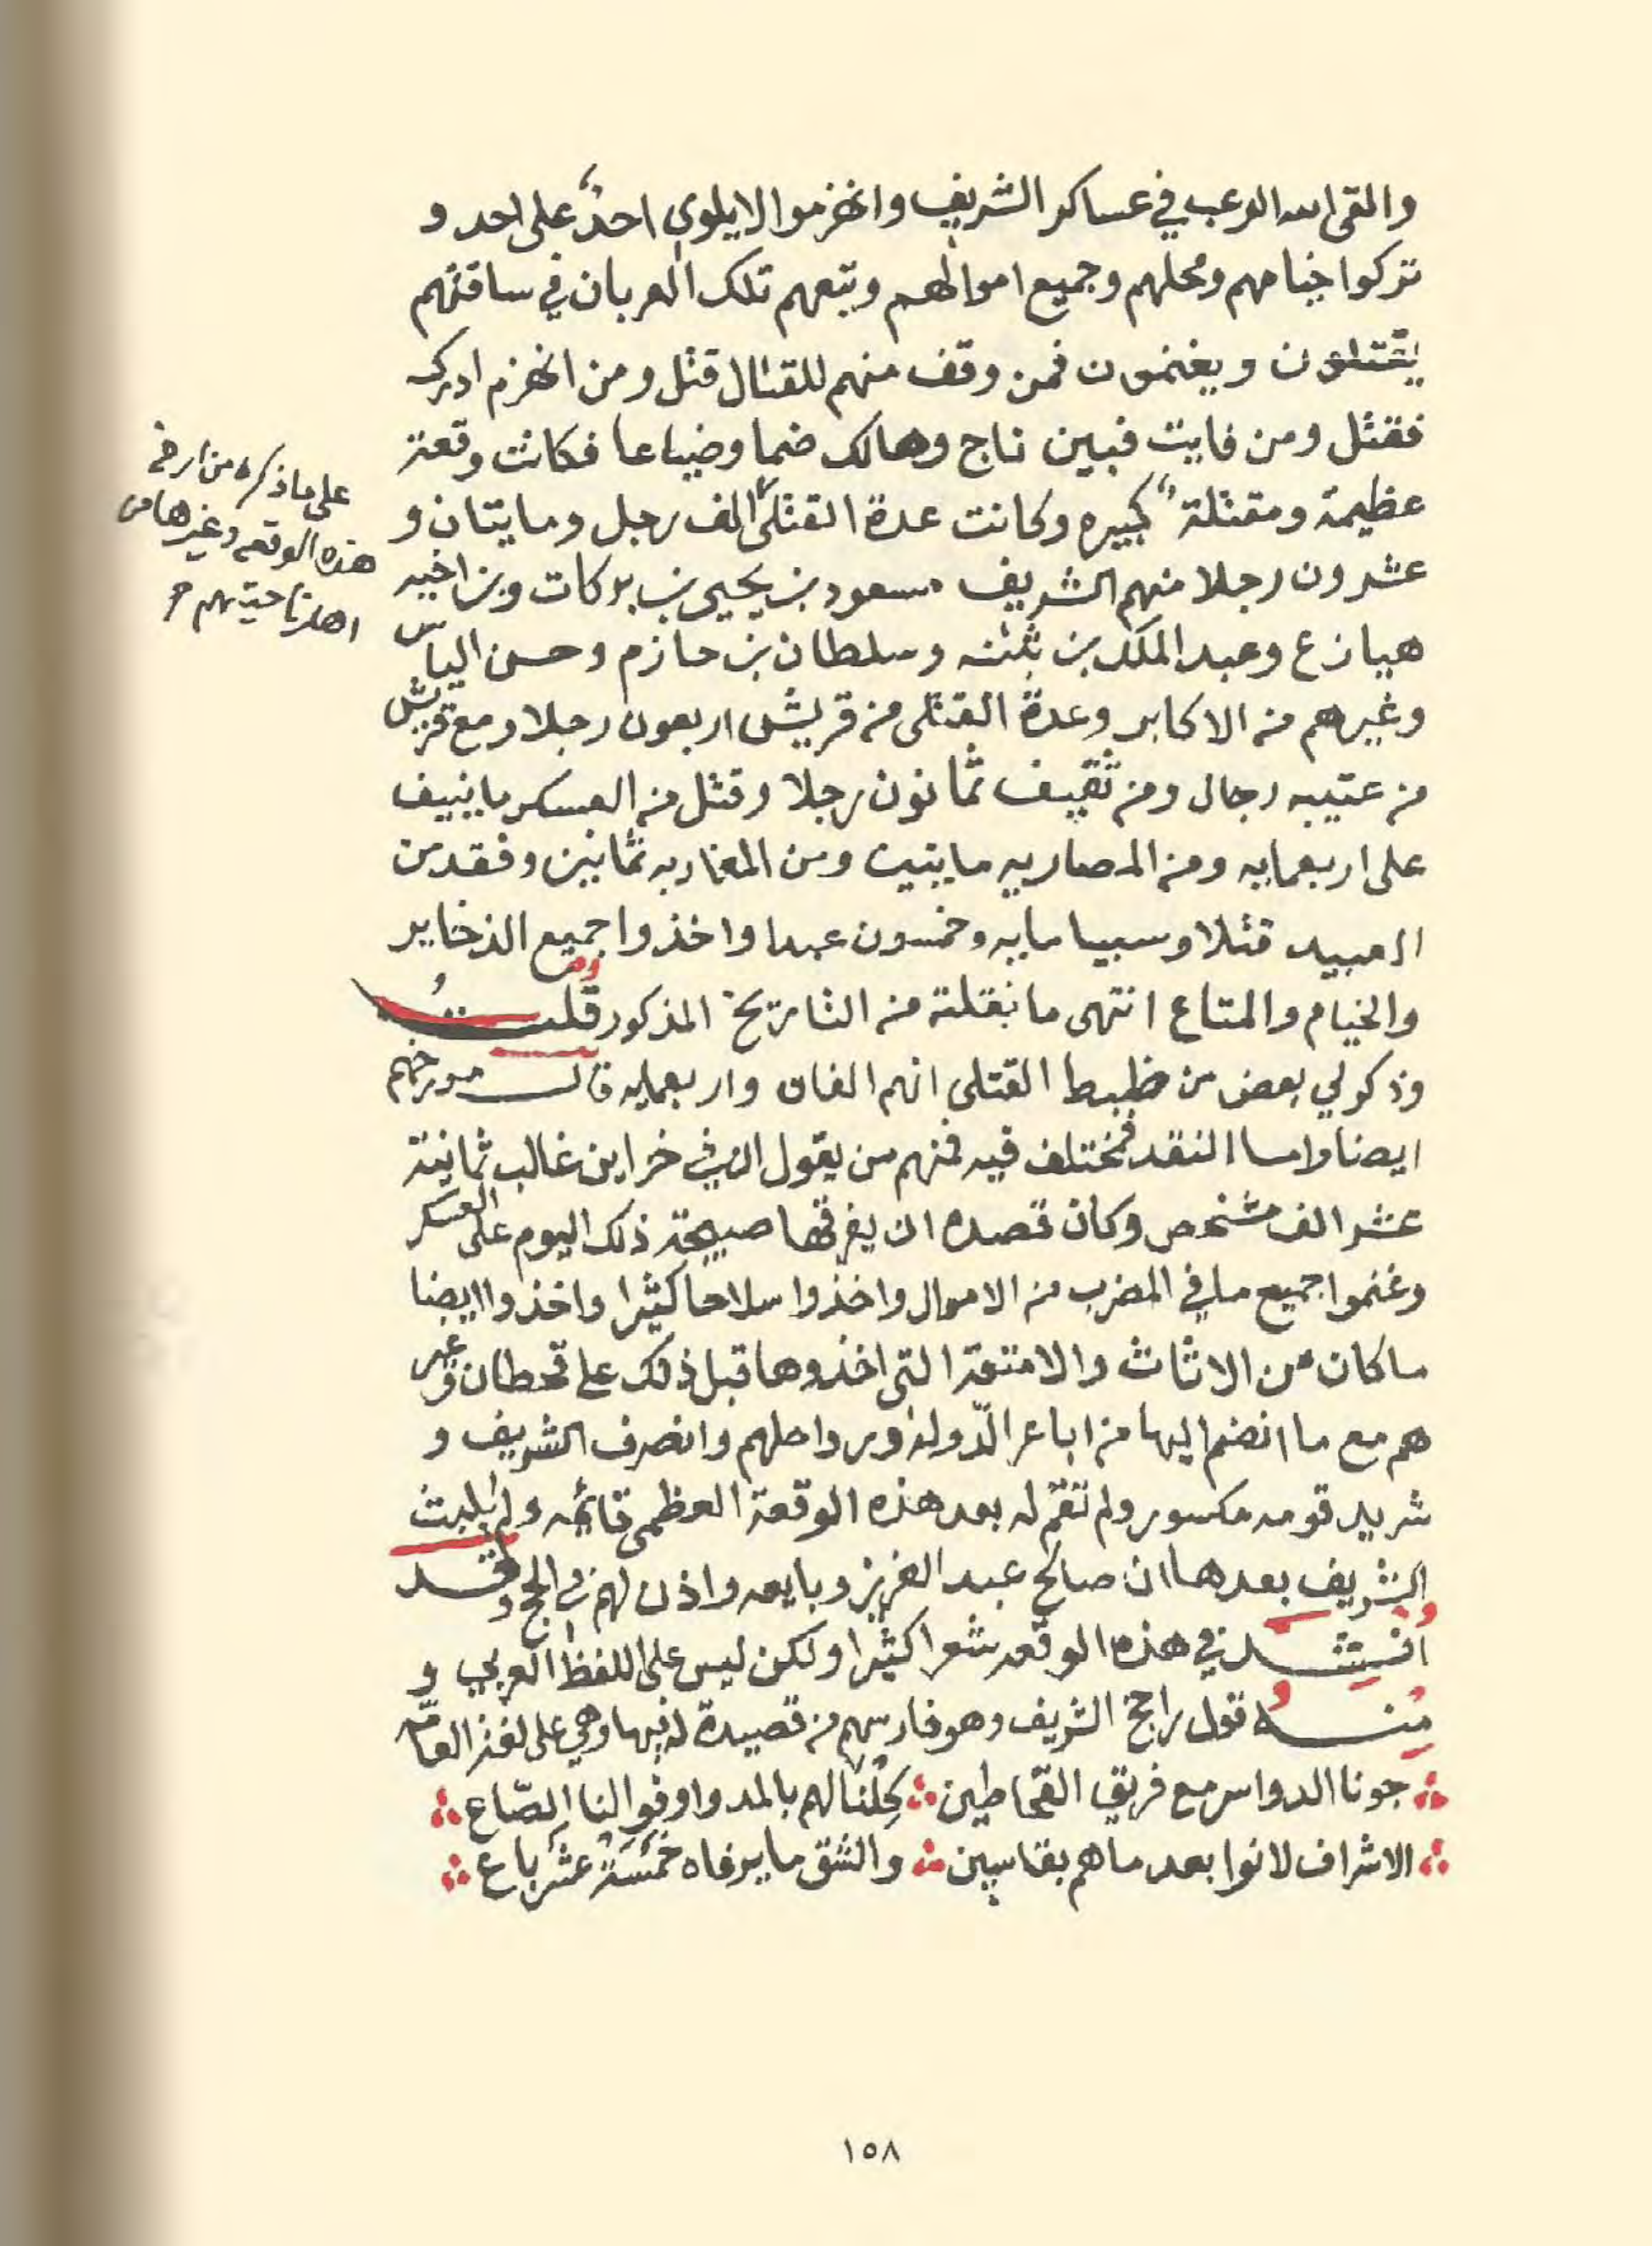 والقى الله الرعب في عساكر الشريف وانهزموا لا يلوي احدٌ على احد و
تركوا خيامهم ومحلهم وجميع اموالهم وتبعهم تلك العربان في ساقتهم
يقتلون ويغنمون فمن وقف منهم للقتال قتل ومن انهزم ادرك
فقتل ومن فايت فبين ناج وهالك ضما وضياعا فكانت وقعة
عظيمة ومقتلة كبيره وكانت عدة القتلى الف رجل ومايتان و
عشرون رجلا منهم الشريف مسعود بن يحيى بن بركات وبن اخيه
هيازع وعبد الملك بن ثقنه وسلطان بن حازم وحسن الياس
وغيرهم من الاكابر وعدة القتلى من قريش اربعون رجلا ومع قريش
من عتيبه رجال ومن ثقيف ثمانون رجلا وقتل من العسكر ما ينيف
على اربعمايه ومن المصاريه مايتين ومن المغاربه ثمانين وفقد من
العبيد قتلا وسبيا مايه وخمسون عبدا واخذوا جميع الذخاير
والخيام والمتاع انتهى ما نقلته من التاريخ المذكور قلت
وذكر لي بعض من ضبط القتلى انهم الفان واربعمايه قال مورخهم
ايضا واما النقد فمختلف فيه فمنهم من يقول ان في خزاين غالب ثمانية
عشر الف مشخص وكان قصده ان يفرقها صبيحة ذلك اليوم على العسكر
وغنموا جميع ما في المضرب من الاموال واخذوا سلاحا كثيرا واخذوا ايضا
ما كان من الاثاث والامتعة التي اخذوها قبل ذلك على قحطان وغير
هم مع ما انضم اليها من اباعر الدّولة ورواحلهم وانصرف الشريف و
شريد قومه مكسور ولم تقم له بعد هذه الوقعة العظمى قائمه ولم يلبث
الشريف بعدها ان صالح عبد العزيز وبايعه واذن لهم في الحج وقد
اُنشد في هذه الوقعه شعرا كثيرا ولكن ليس على اللفظ العربي و
مِنه قول راجح الشريف وهو فارسهم من قصيدة له فيها وهي على لغة العامّه
جونا الدواسر مع فريق القحاطين كِلْنا لهم بالمد واوفوا لنا الصّاع
الاشراف لانوا بعد ما هم بقاسين والشق ما يرفاه خَمْسَةْ عشْر باع
على ما ذكره من ارخ
هذه الوقعه وغيرها من
اهل ناحيتهم
١٥٨